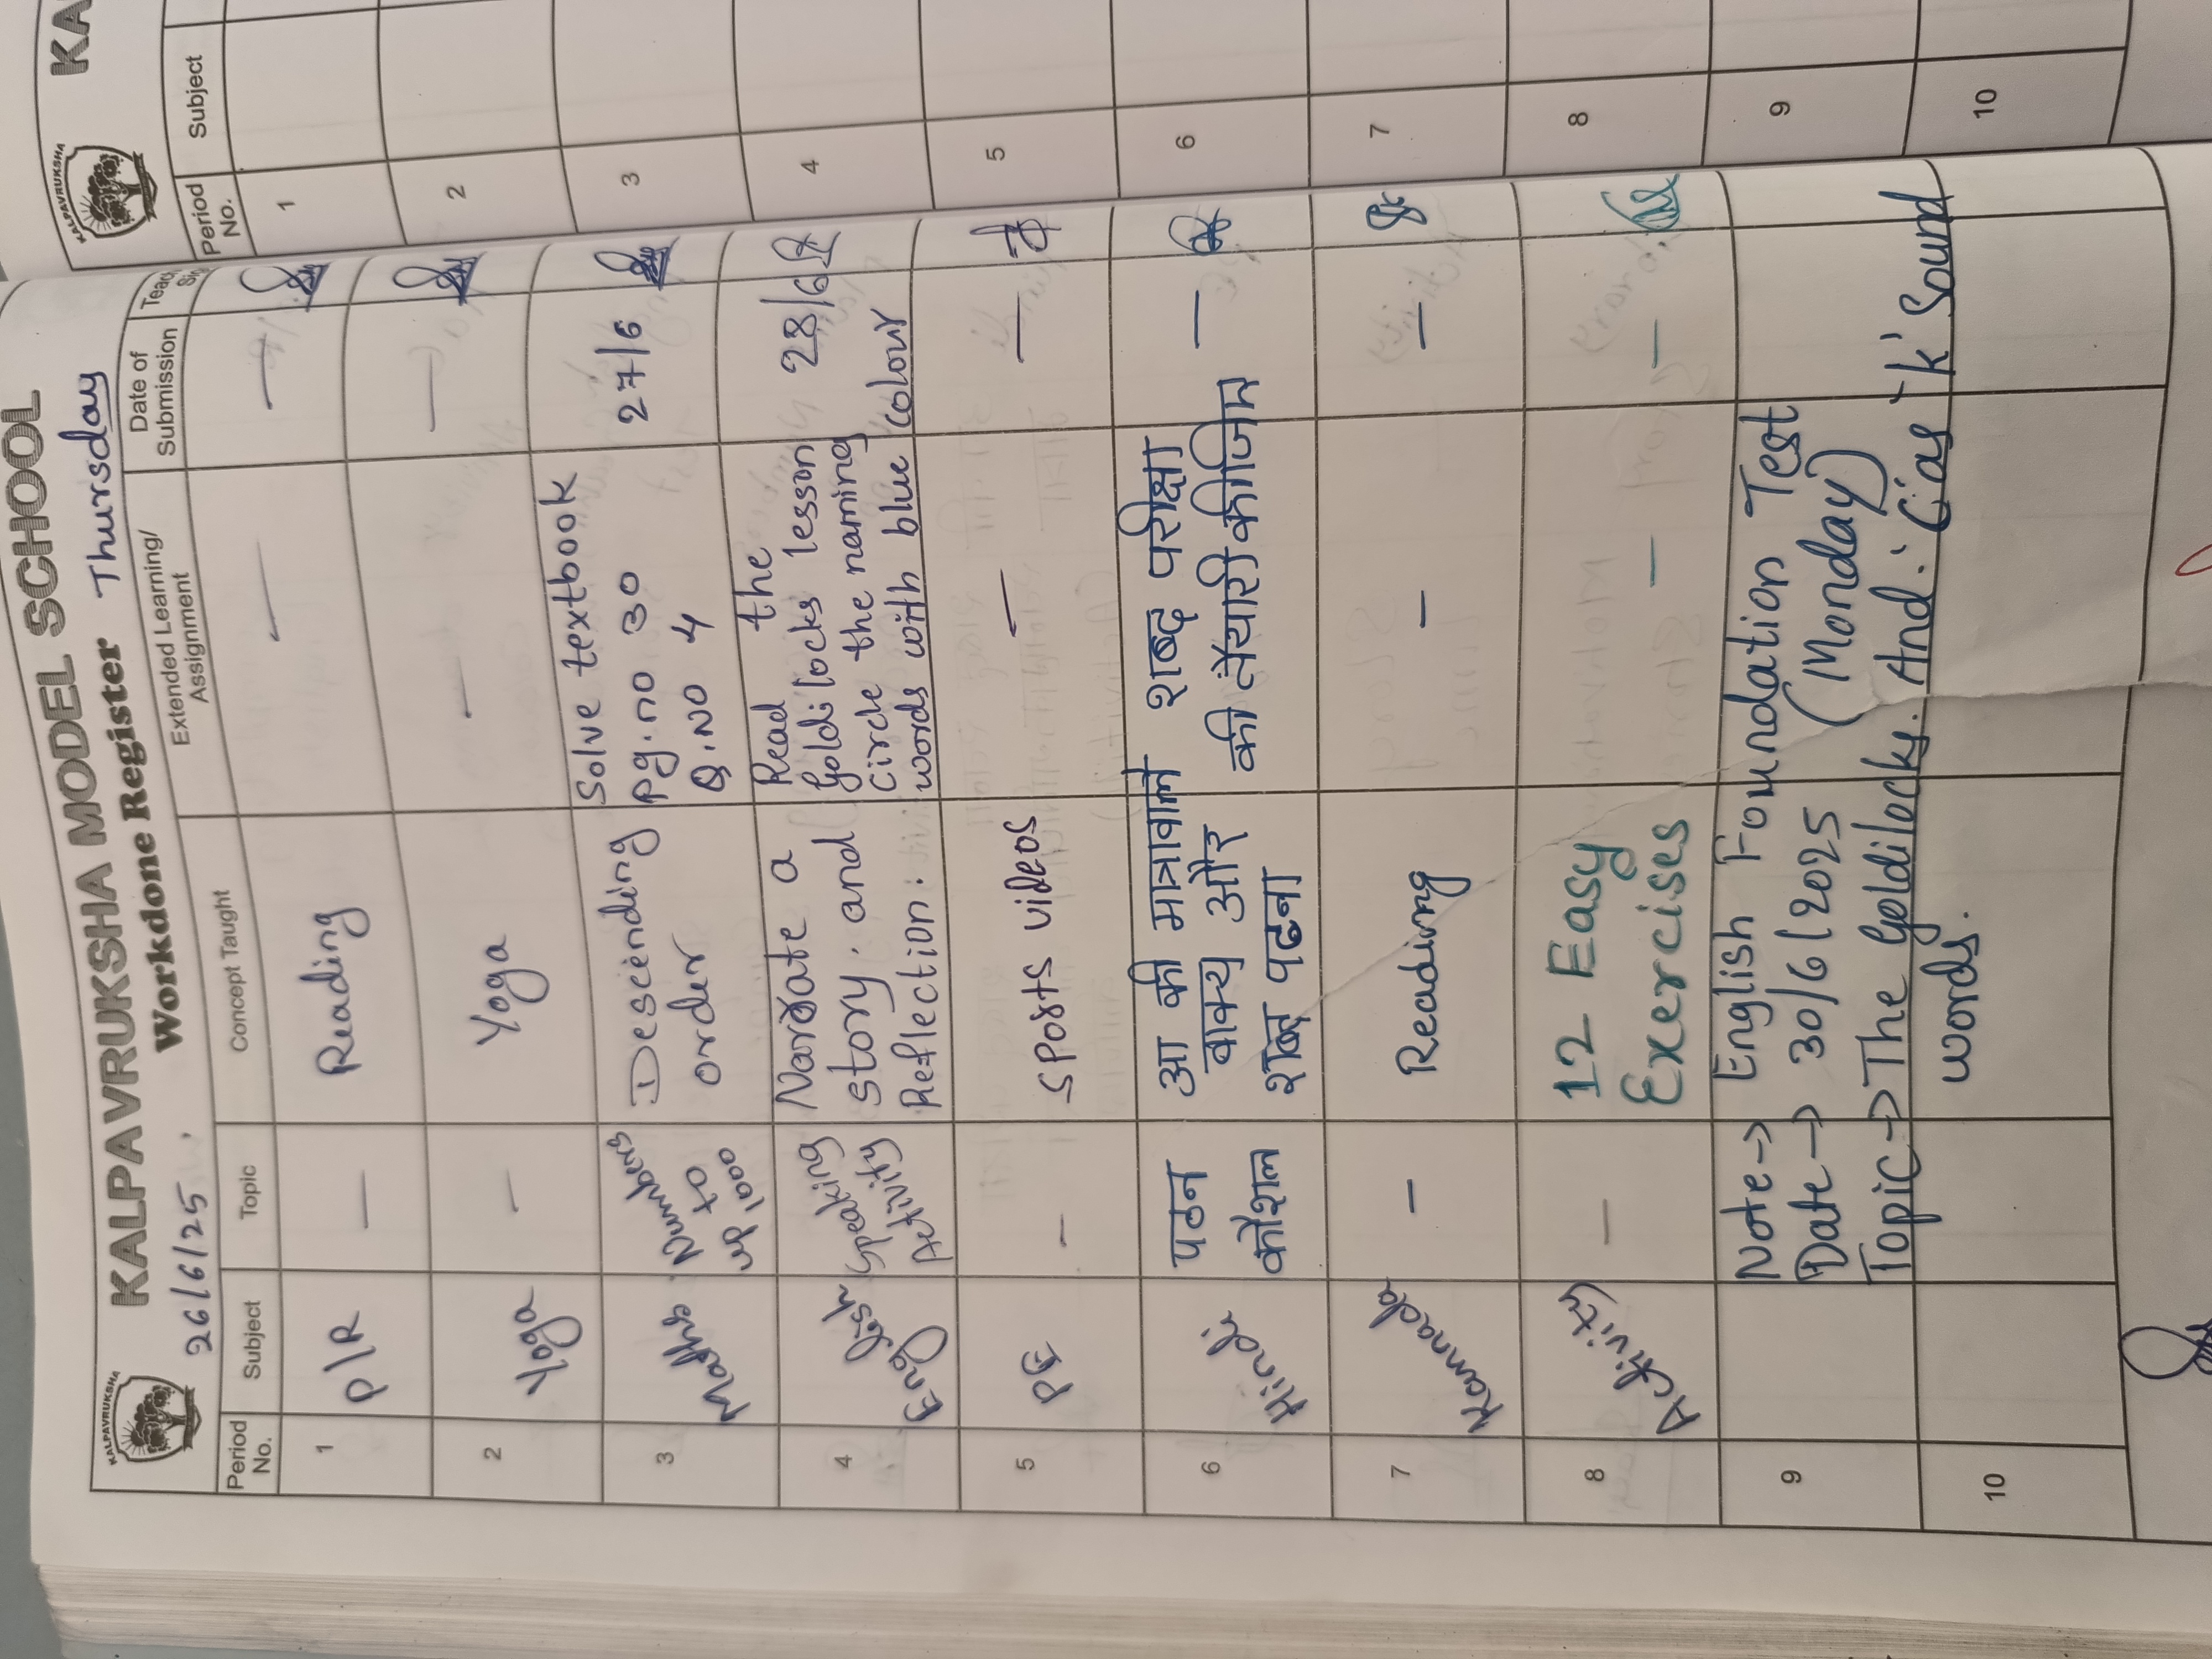 KALPAVRUKSHA
KALPAVRUKSHA MODEL SCHOOL
Workdone Register
26/6/25
Thursday
Period No.
Subject
Topic
Concept Taught
Extended Learning/ Assignment
Date of Submission
1
P/R
—
Reading
—
—
2
Yoga
—
Yoga
—
—
3
Maths
Numbers
up to
1000
Descending
order
Solve textbook
pg.no 30
Q.NO 4
27/6
4
English
Speaking
Activity
Narrate a
story. and
Reflection:
Read the
Goldilocks lesson
circle the naming
words with blue colour
28/6
5
PE
—
sports videos
—
—
6
Hindi
पठन
कौशल
आ की मात्रावाले
वाक्य और
शब्द पढना
शब्द परीक्षा
की तैयारी कीजिए
—
7
Kannada
—
Reading
—
—
8
Activity
—
12 Easy
Exercises
—
—
9
Note-> English Foundation Test
Date-> 30/6/2025 (Monday)
Topic-> The Goldilocks. And: C as 'k' Sound
words.
10
KALPAVRUKSHA
KA
Period No.
Subject
1
2
3
4
5
6
7
8
9
10